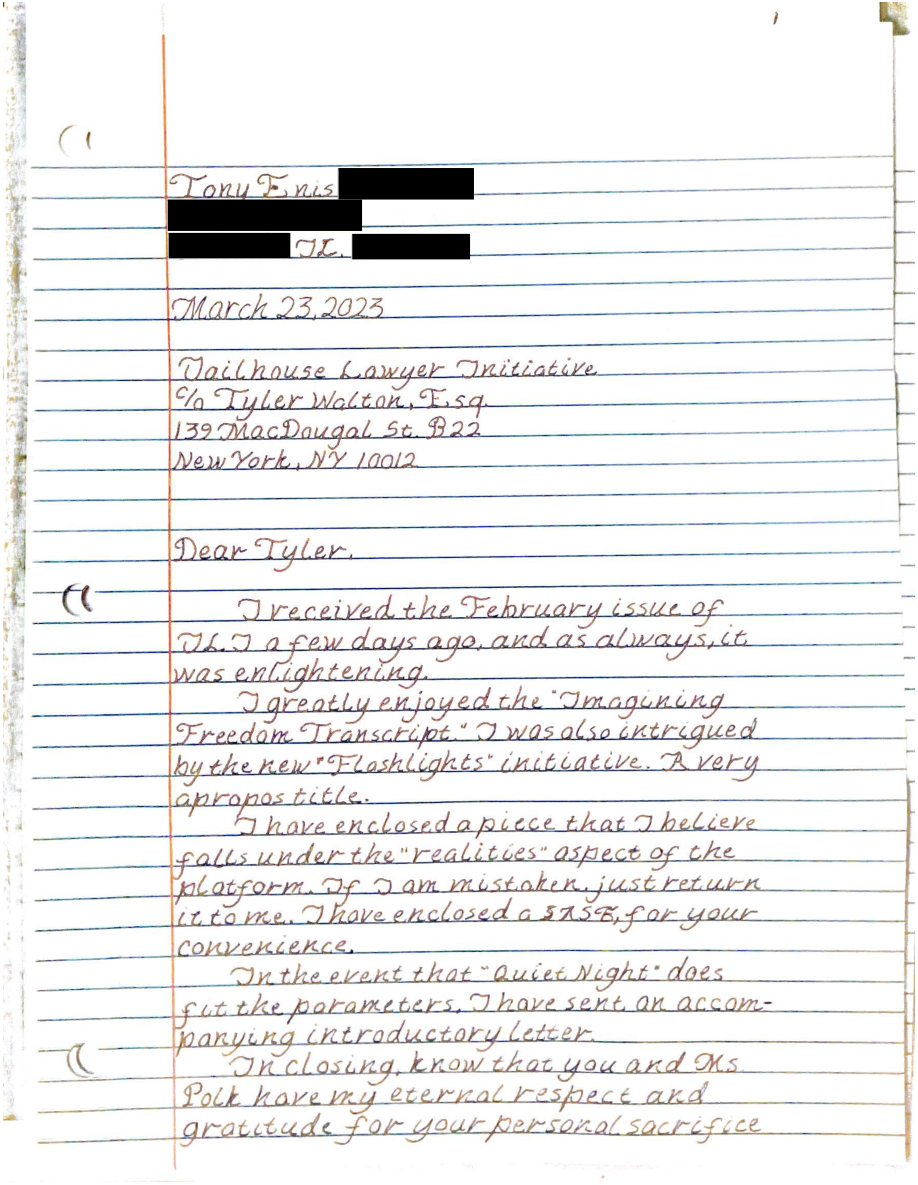 Tony Enis
IL.
March 23, 2023
Jailhouse Lawyer Initiative
c/o Tyler Walton, Esq.
139 MacDougal St. B22
New York, NY 10012
Dear Tyler,
I received the February issue of
JLI a few days ago, and as always, it
was enlightening.
I greatly enjoyed the "Imagining
Freedom Transcript." I was also intrigued
by the new "Flashlights" initiative. A very
apropos title.
I have enclosed a piece that I believe
falls under the "realities" aspect of the
platform. If I am mistaken, just return
it to me. I have enclosed a SASE, for your
convenience.
In the event that "Quiet Night" does
fit the parameters, I have sent an accom-
panying introductory letter.
In closing, know that you and Ms.
Polk have my eternal respect and
gratitude for your personal sacrifice